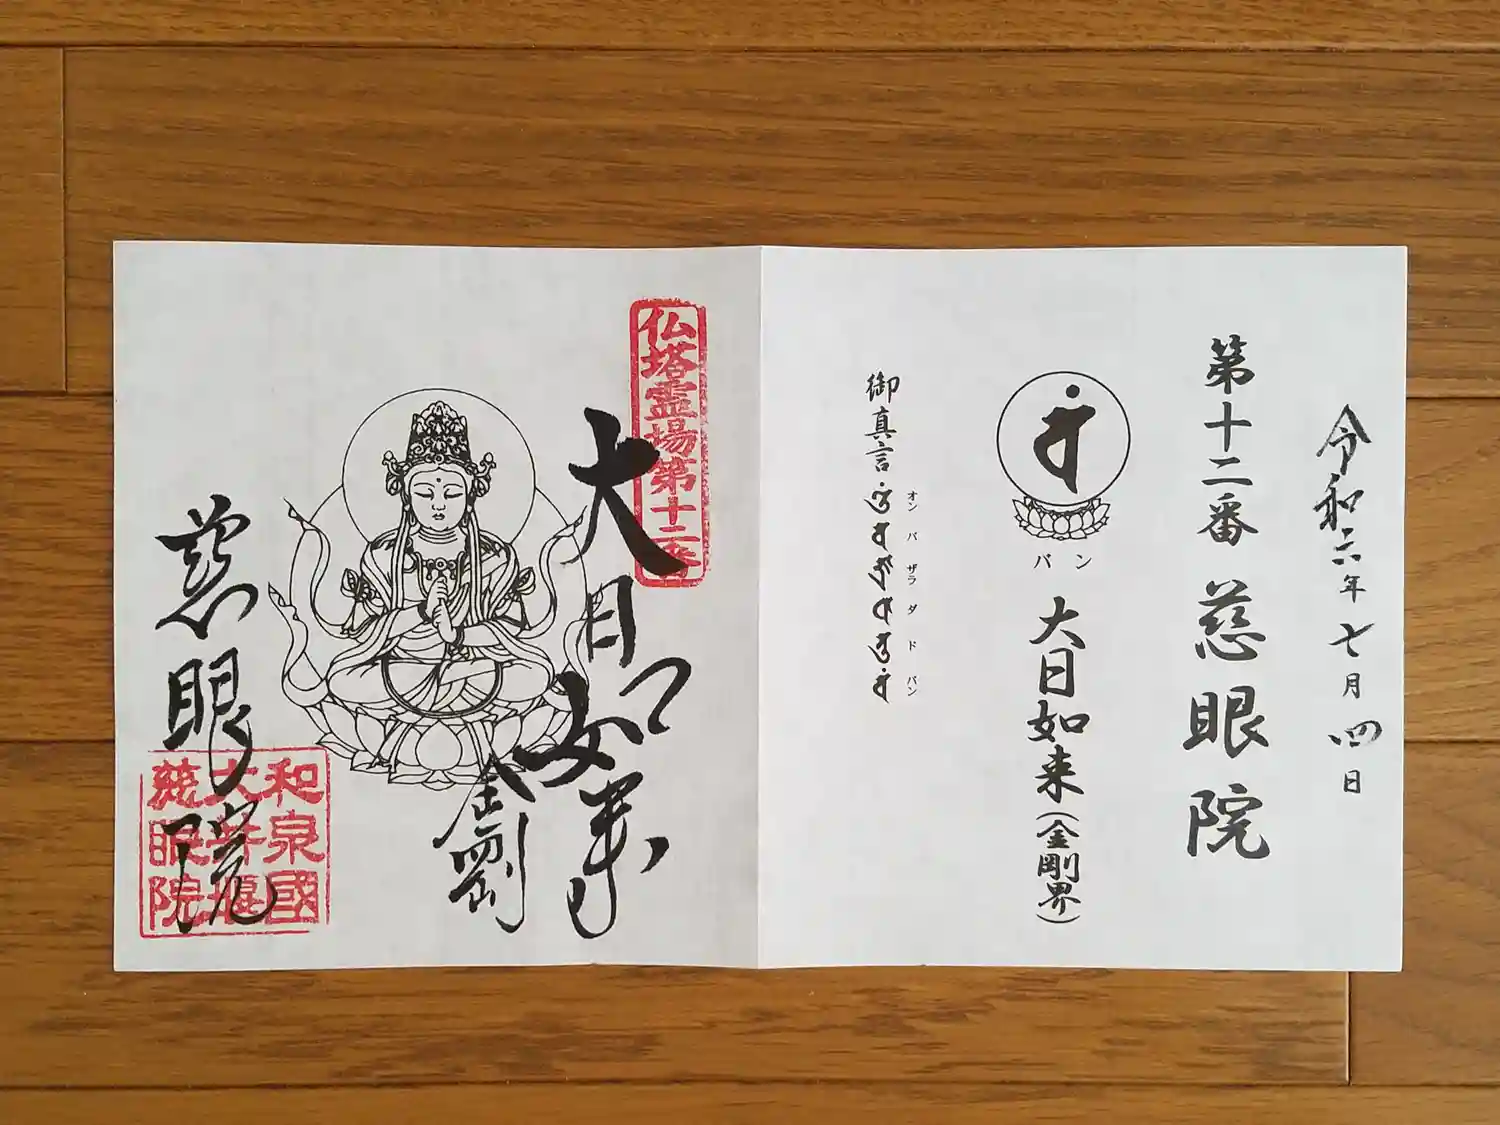 令和六年七月四日
第十二番 慈眼院
バン
大日如来(金剛界)
御真言
オン バ ザラ ダ ド バン
仏塔霊場第十二番
大日如来
金剛
慈眼院
和泉國
大井堰
慈眼院